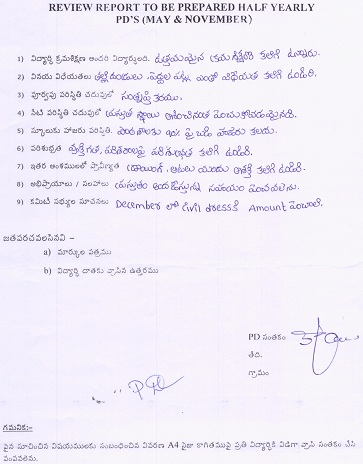 REVIEW REPORT TO BE PREPARED HALF YEARLY
PD'S (MAY & NOVEMBER)
1) విద్యార్థి క్రమశిక్షణ అందరి విద్యార్థులది. ఉత్తమమైన క్రమశిక్షణ కలిగి ఉన్నారు.
2) వినయ విధేయతలు తల్లిదండ్రులు, పెద్దల పట్ల ఎంతో విధేయత కలిగి ఉండిరి.
3) పూర్వపు పరిస్థితి చదువులో సంతృప్తి కరము.
4) నేటి పరిస్థితి చదువులో ప్రస్తుత స్థాయి ఆశించినంత పెంచుకోవడమైనది.
5) స్కూలుకు హాజరు పరిస్థితి. పాఠశాలకు 90% పైబడి హాజరు కలరు.
6) పరిశుభ్రత వ్యక్తిగత, పరిసరాలపై పరిశుభ్రత కలిగి ఉండిరి.
7) ఇతర అంశములలో ప్రావీణ్యత డ్రాయింగ్, ఆటలు యందు ఆసక్తి కలిగి ఉండిరి.
8) అభిప్రాయాలు / సలహాలు ప్రస్తుతం ఇవ్వబడిన సహాయం పెంచవలెను.
9) కమిటీ సభ్యుల సూచనలు December లో Civil dress కి Amount పెంచాలి.
జతపరచవలసినవి –
a) మార్కుల పత్రము
b) విద్యార్థి దాతకు వ్రాసిన ఉత్తరము
PD సంతకం
తేది.
గ్రామం
గమనిక:-
పైన సూచించిన విషయములకు సంబంధించిన వివరణ A4 సైజు కాగితముపై ప్రతి విద్యార్థికి విడిగా వ్రాసి సంతకం చేసి
పంపవలెను.